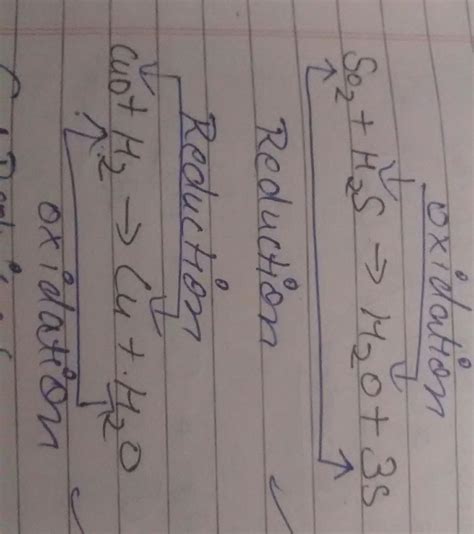 oxidation
So₂ + H₂S → H₂O + 3S
Reduction
Reduction
CuO + H₂ → Cu + H₂O
oxidation